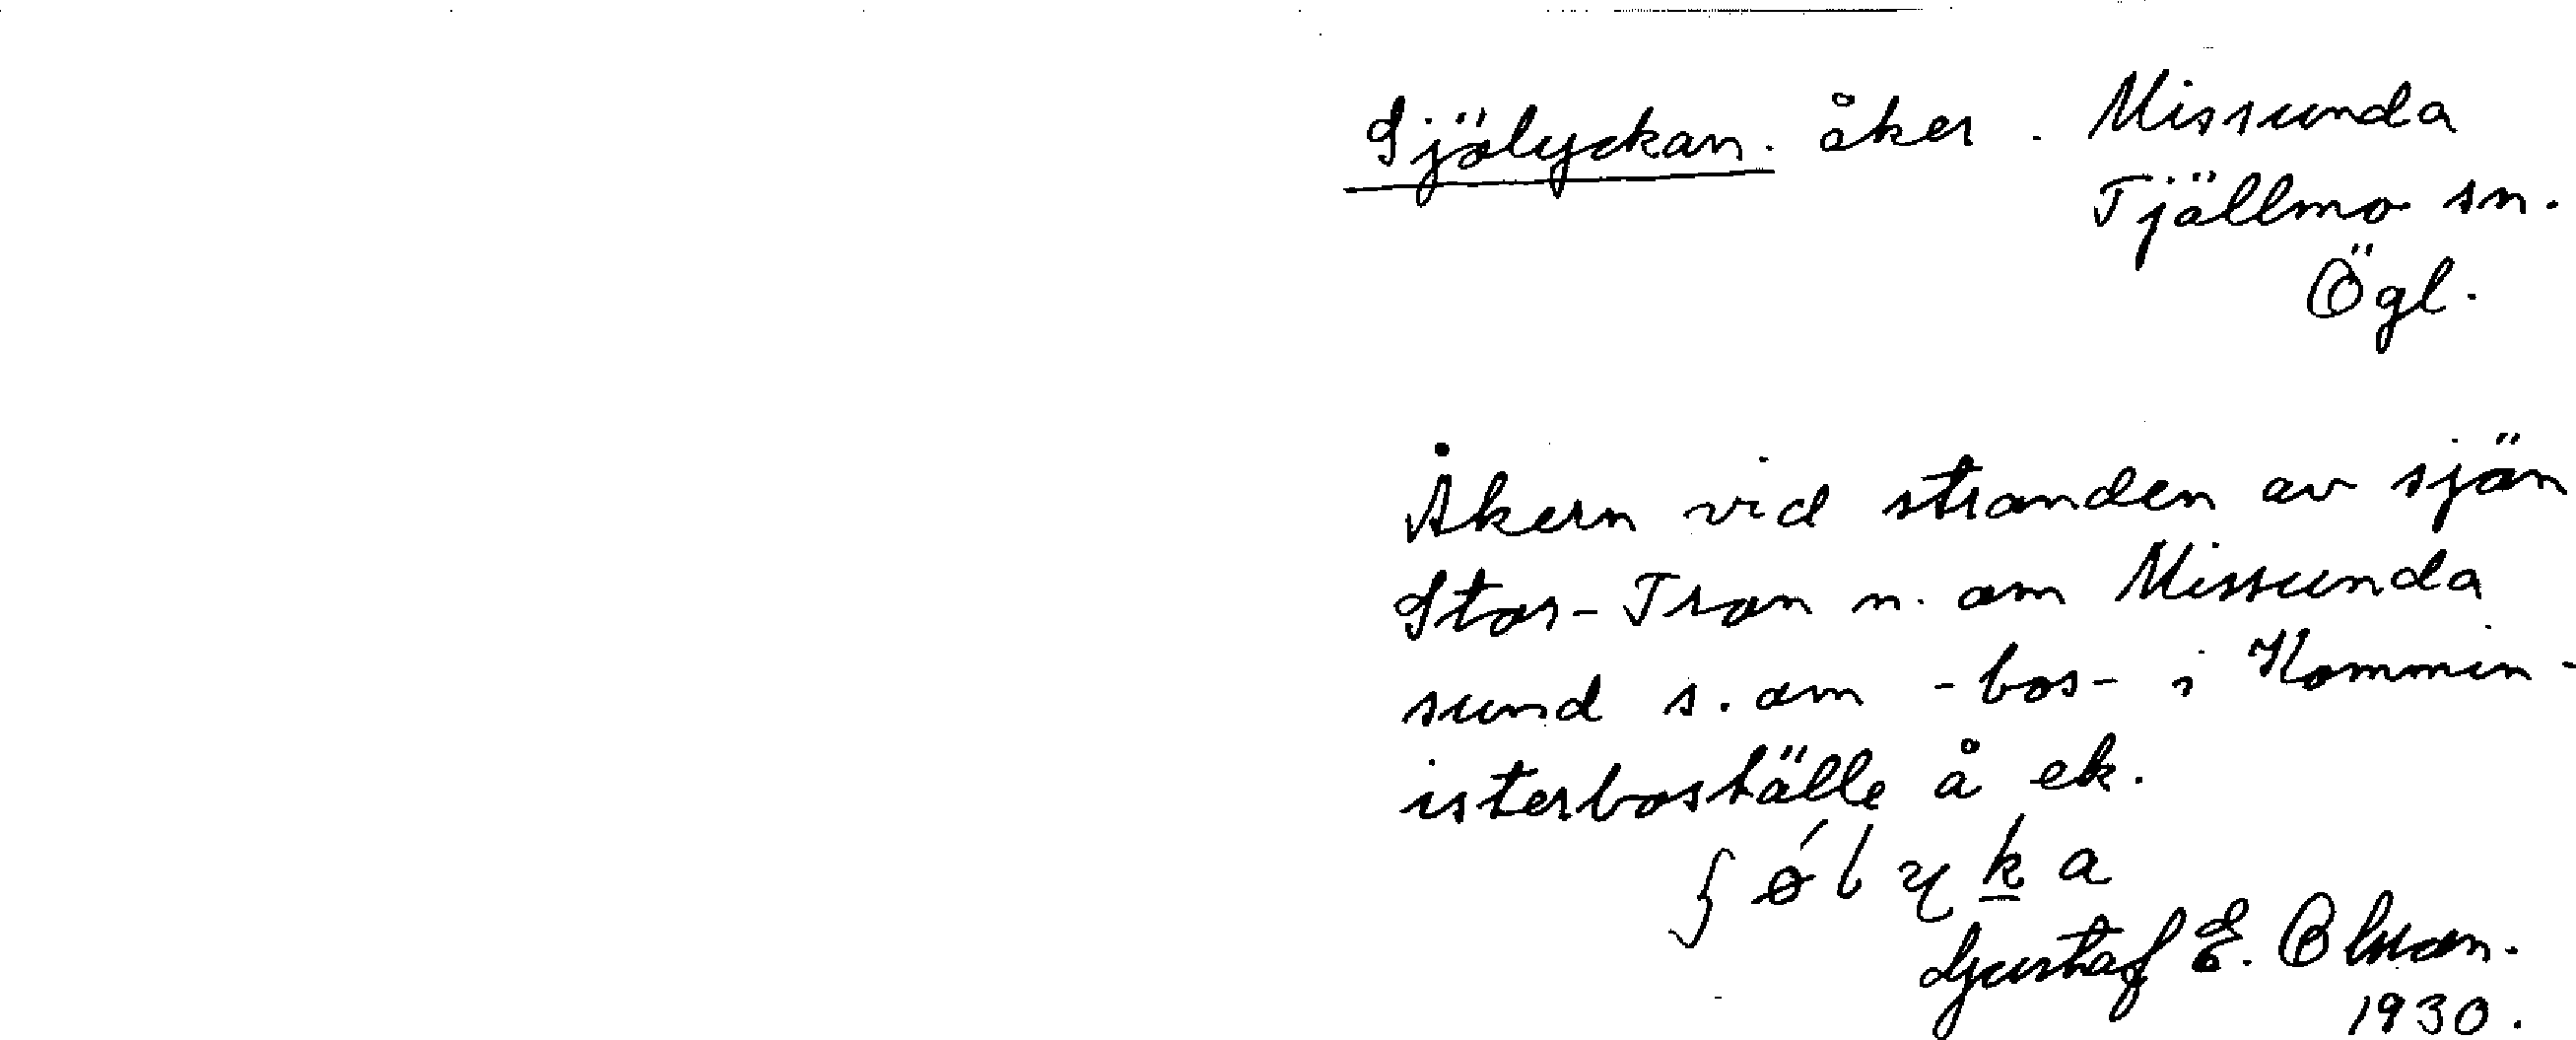 Sjölyckan. åker. Missunda
Tjällmo sn.
Ögl.
Åkern vid stranden av sjön
Stor-Tron n. om Missunda
sund s. om -bos- i Kommin-
isterboställe å ek.
Gustaf E. Olsson.
1930.